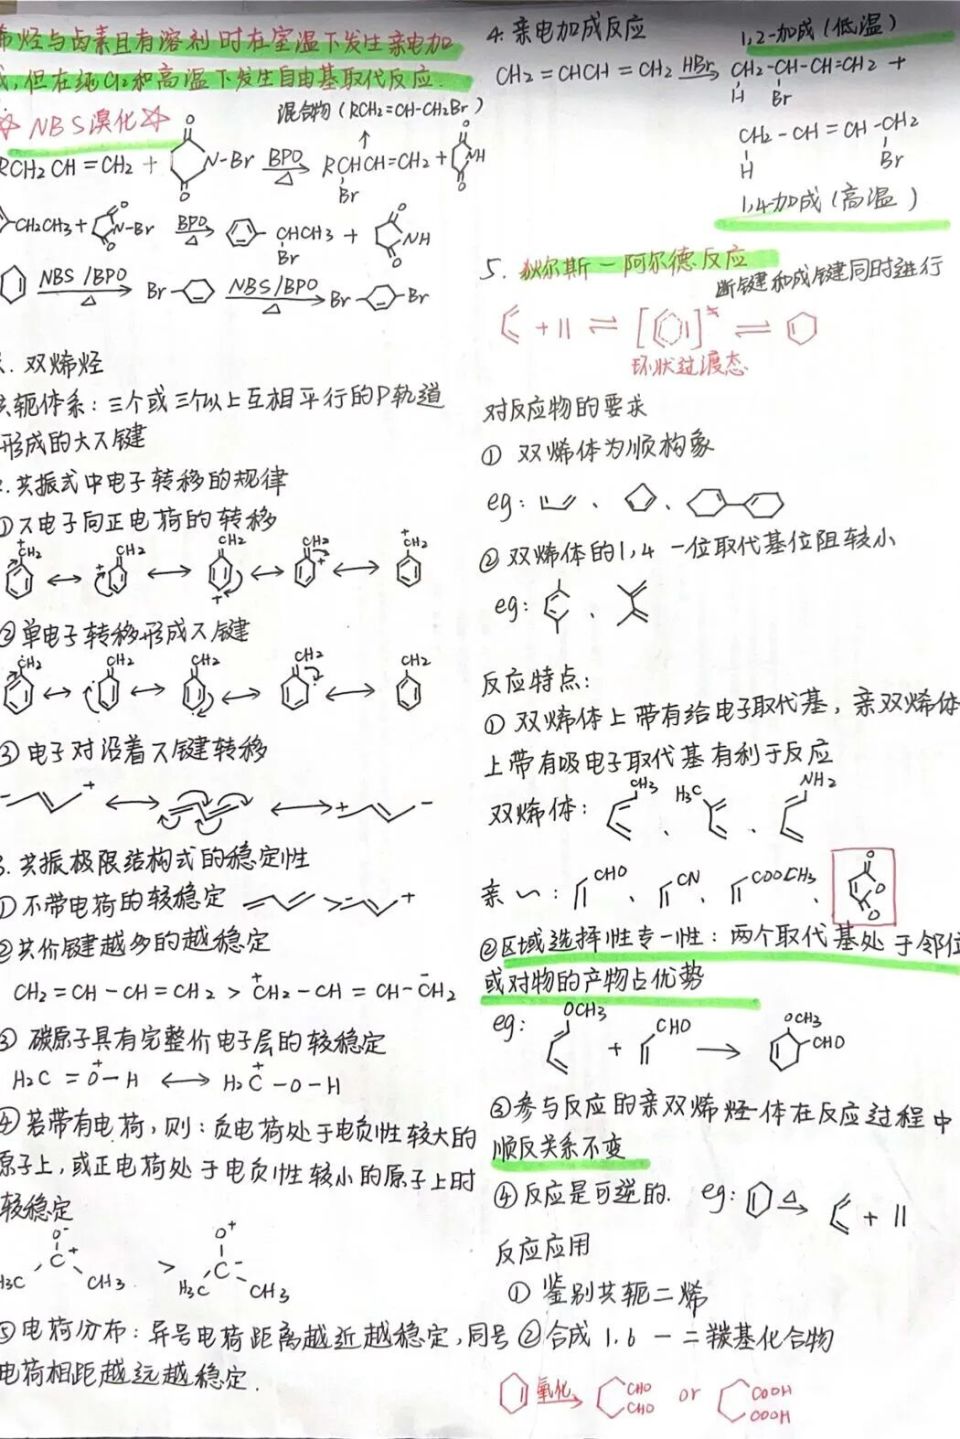 烯烃与卤素且有溶剂时在室温下发生亲电加
成,但在纯Cl2和高温下发生自由基取代反应.
☆NBS溴化☆
混合物(RCH2=CH-CH2Br)
RCH2CH=CH2 + N-Br BPO △ RCHCH=CH2 + NH
Br
CH2CH3 + N-Br BPO △ CHCH3 + NH
Br
NBS/BPO △ Br NBS/BPO △ Br Br
双烯烃
共轭体系:三个或三个以上互相平行的P轨道
形成的大π键
2.共振式中电子转移的规律
①π电子向正电荷的转移
+CH2 CH2 CH2 CH2 +CH2
②单电子转移形成π键
CH2 CH2 CH2 CH2 CH2
③电子对沿着π键转移
3.共振极限结构式的稳定性
①不带电荷的较稳定
②共价键越多的越稳定
CH2=CH-CH=CH2 > +CH2-CH=CH-CH2-
③碳原子具有完整价电子层的较稳定
H2C=O+-H ↔ H2C+-O-H
④若带有电荷,则:负电荷处于电负性较大的
原子上,或正电荷处于电负性较小的原子上时
较稳定
O- O+
C+ > C-
H3C CH3 H3C CH3
⑤电荷分布:异号电荷距离越近越稳定,同号
电荷相距越远越稳定.
4.亲电加成反应
1,2-加成(低温)
CH2=CHCH=CH2 HBr CH2-CH-CH=CH2 +
H Br
CH2-CH=CH-CH2
H Br
1,4-加成(高温)
5.狄尔斯-阿尔德反应
断键和成键同时进行
环状过渡态
对反应物的要求
①双烯体为顺构象
eg: 、 、
②双烯体的1,4一位取代基位阻较小
eg: 、
反应特点:
①双烯体上带有给电子取代基,亲双烯体
上带有吸电子取代基有利于反应
双烯体: CH3 、 H3C 、 NH2
亲~: CHO 、 CN 、 COOCH3 、 O O O
②区域选择性专一性:两个取代基处于邻位
或对物的产物占优势
eg: OCH3 + CHO → OCH3 CHO
③参与反应的亲双烯烃体在反应过程中
顺反关系不变
④反应是可逆的. eg: △ +
反应应用
①鉴别共轭二烯
②合成1,6一二羰基化合物
氧化 CHO CHO or COOH COOH